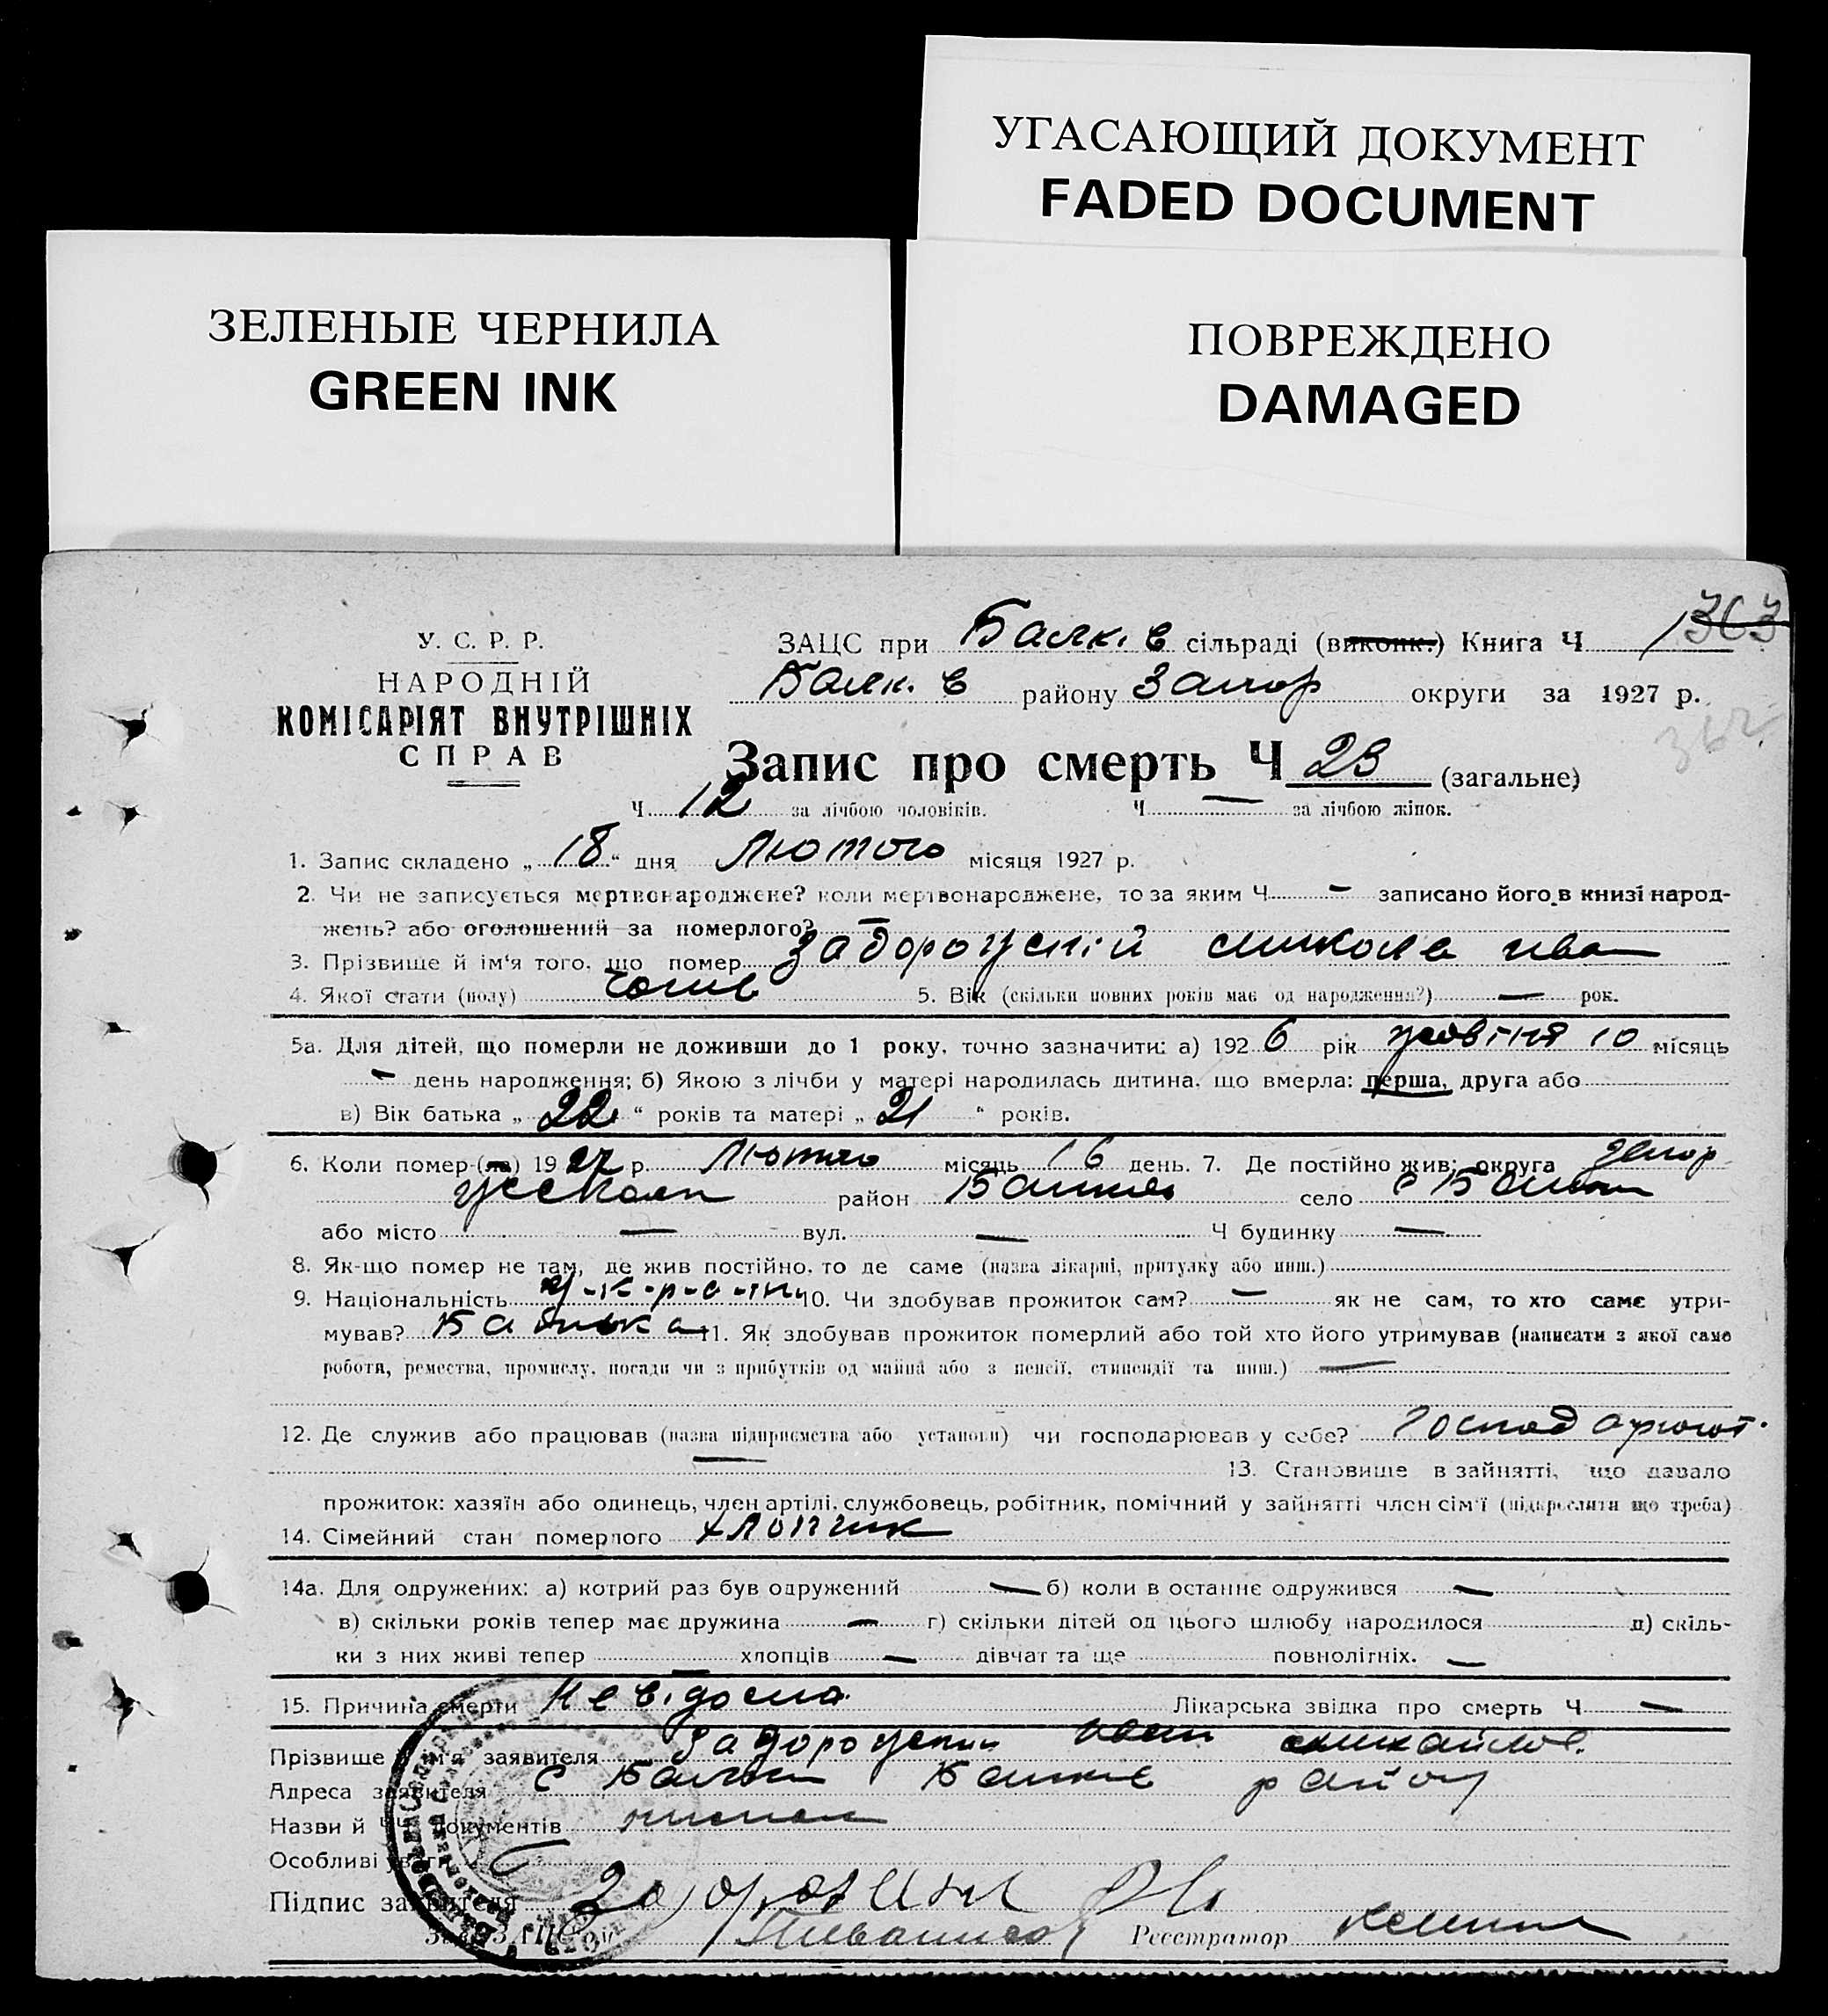 УГАСАЮЩИЙ ДОКУМЕНТ
FADED DOCUMENT
ЗЕЛЕНЫЕ ЧЕРНИЛА
GREEN INK
ПОВРЕЖДЕНО
DAMAGED
У. С. Р. Р.
НАРОДНІЙ
КОМІСАРІЯТ ВНУТРІШНІХ
СПРАВ
ЗАЦС при Балк. в сільраді (виконк.) Книга Ч
Балк. в району Запор округи за 1927 р.
Запис про смерть Ч 23 (загальне)
Ч 12 за лічбою чоловіків. Ч — за лічбою жінок.
1. Запис складено „ 18 “ дня Лютого місяця 1927 р.
2. Чи не записується мертвонароджене? коли мертвонароджене, то за яким Ч — записано його в книзі народ-
жень? або оголошений за померлого? —
3. Прізвище й ім‘я того, що помер Задорожній микола ива
4. Якої стати (полу) чолов 5. Вік (скільки повних років має од народження?) — рок.
5а. Для дітей, що померли не доживши до 1 року, точно зазначити: а) 1926 рік жовтня 10 місяць
— день народження; б) Якою з лічби у матері народилась дитина, що вмерла: перша, друга або
в) Вік батька „ 22 “ років та матері „ 21 “ років.
6. Коли помер (ла) 1927 р. Лютого місяць 16 день. 7. Де постійно жив: округа Запор
район село с Балки
або місто — вул. — Ч будинку —
8. Як-що помер не там, де жив постійно, то де саме (назва лікарні, притулку або инш.)
9. Національність у-к-р-а-їн 10. Чи здобував прожиток сам? — як не сам, то хто саме утри-
мував? Батька 11. Як здобував прожиток померлий або той хто його утримував (написати з якої саме
роботи, ремества, промислу, посади чи з прибутків од майна або з пенсії, стипендії та инш.) —
12. Де служив або працював (назва підприємства або установи) чи господарював у себе? господарюют.
— 13. Становище в зайнятті, що давало
прожиток: хазяїн або одинець, член артілі, службовець, робітник, помічний у зайнятті член сім‘ї (підкреслити що треба)
14. Сімейний стан померлого хлопчик
14а. Для одружених: а) котрий раз був одружений — б) коли в останнє одружився —
в) скільки років тепер має дружина — г) скільки дітей од цього шлюбу народилося д) скіль-
ки з них живі тепер — хлопців — дівчат та ще повнолітніх. —
15. Причина смерти Невідома Лікарська звідка про смерть Ч —
Прізвище й ім‘я заявителя Задорожний иван михайлов.
Адреса заявителя с Балки Балків району
Назви й ЧЧ документів
Особливі уваги
Підпис заявителя
Зав. ЗАЦС‘ом Реєстратор